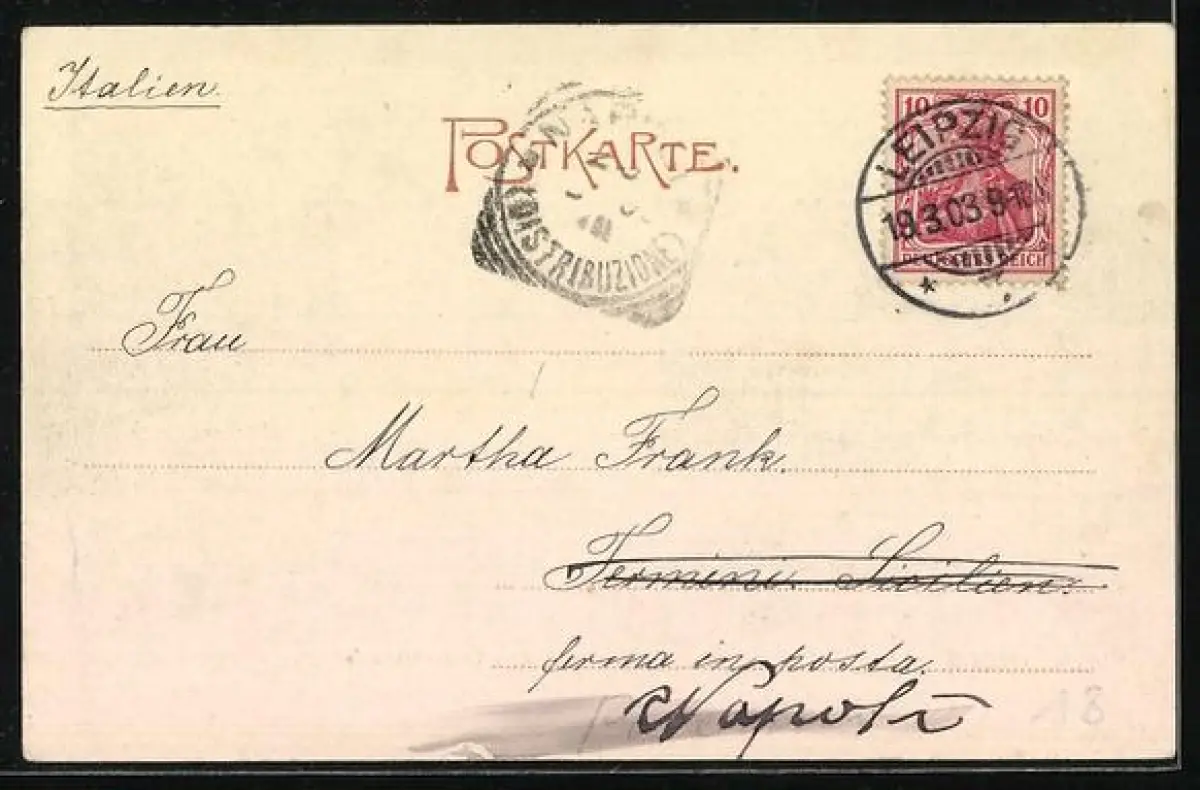 Italien
POSTKARTE.
(DISTRIBUZIONE)
10 10
LEIPZIG
19.3.03 9-10
REICH
Frau
Martha Frank.
Termini. Sicilien.
ferma in posta.
Napoli
18